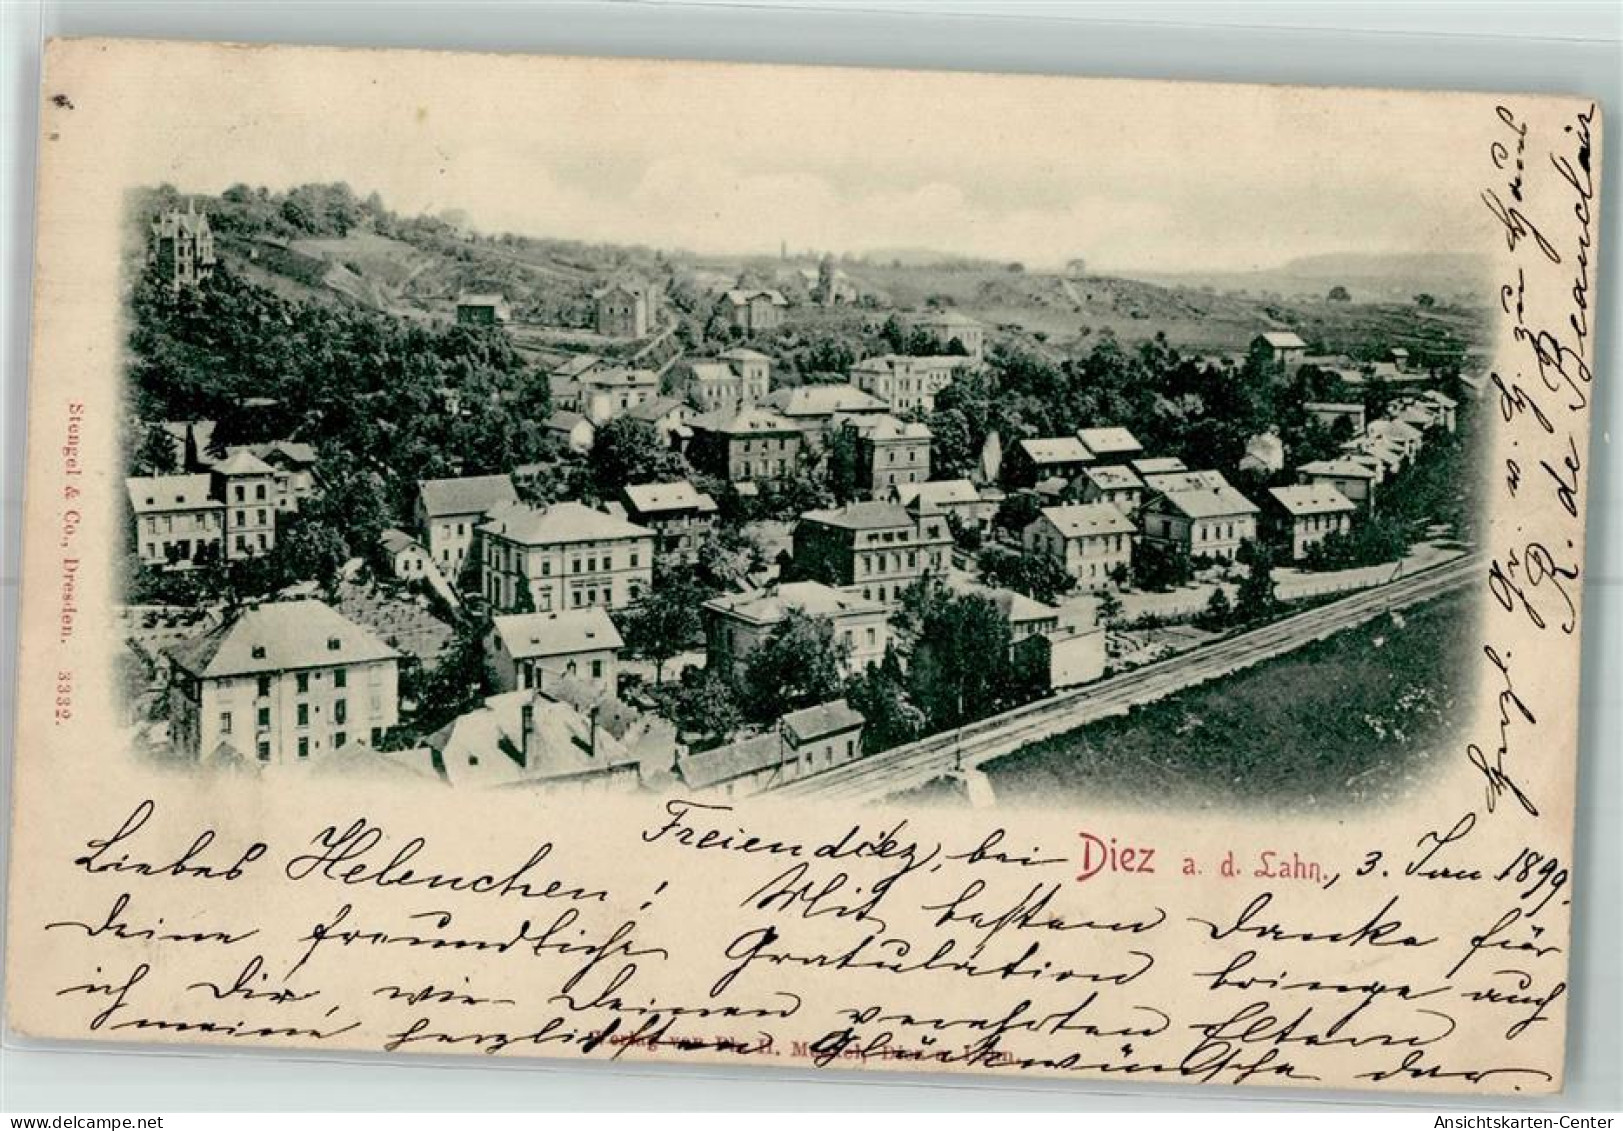 Freiendiez, bei Diez a. d. Lahn., 3. Jan 1899.
Liebes Helenchen! Mit bestem Danke für
Deine freundliche Gratulation bringe auch
ich Dir, wie Deinen verehrten Eltern
meine herzlichsten Glückwünsche dar.
Herzl. Gr. v. H. zu Haus
R. de Beauclair
Stengel & Co., Dresden. 3332.
Verlag von Ph. H. Meckel, Diez a. Lahn.
Ansichtskarten-Center